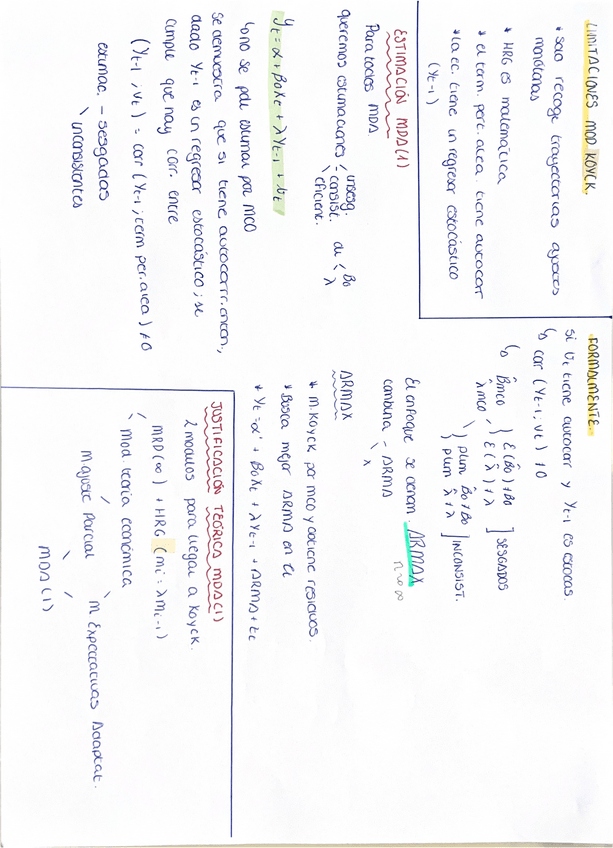 LIMITACIONES MOD KOYCK.
* Solo recoge trayectorias ajustes monótonas
* HRG es matemática
* el term. pert. alea tiene autocor
* La ec. tiene un regresor estocástico
(Yt-1)
ESTIMACIÓN MDA(1)
Para todos MDA
queremos estimaciones
insesg.
consist.
eficient.
de
β0
λ
Yt = α + β0Xt + λYt-1 + Ut
↳ no se pde estimar por MCO
Se demuestra que si tiene autocorr. entonces,
dado Yt-1 es un regresor estocástico; se
cumple que hay corr. entre
(Yt-1; vt) = cor (Yt-1; term per. alea) ≠ 0
estimac. - sesgadas
inconsistentes
FORMALMENTE.
Si Ut tiene autocor y Yt-1 es estocas.
↳ cor (Yt-1; vt) ≠ 0
↳ β̂mco, λ̂mco
E(β̂0) ≠ β0
E(λ̂) ≠ λ
] SESGADOS
plim β̂0 ≠ β0
plim λ̂ ≠ λ
] INCONSIST.
n→∞
El enfoque se denom. ARMAX
combina - ARMA
x
ARMAX
* M. Koyck por MCO y obtiene residuos.
* Busca mejor ARMA en û
* Yt = α' + β0Xt + λYt-1 + ARMA + εt
JUSTIFICACIÓN TEÓRICA MDA(1)
2 modelos para llegar a Koyck.
MRD(∞) + HRG (mi = λmi-1)
Mod teoría económica
M ajuste Parcial
M Expectativas Adaptat.
MDA(1)